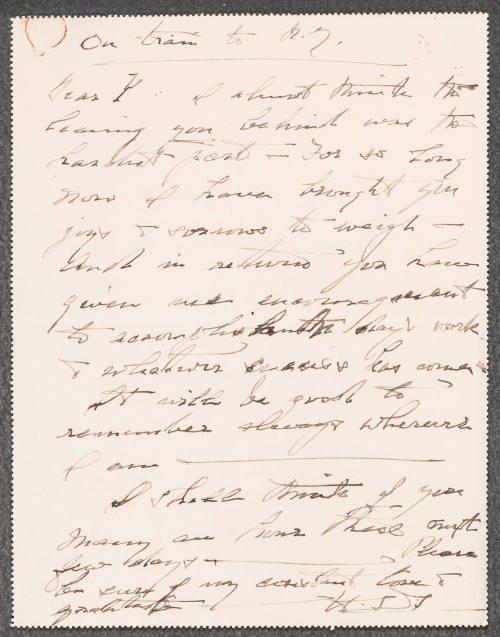 On train to N.Y.
Dear F. I almost think the
leaving you behind was the
hardest part — For so long
now I have brought you
joys & sorrows to weigh —
And in return you have
given me encouragement
to accomplish the day's work
& whatever crisis has come
It will be good to
remember always wherever
I am
I shall think of you
many an hour these next
few days — Please
be sure of my constant love &
gratitude H.S.